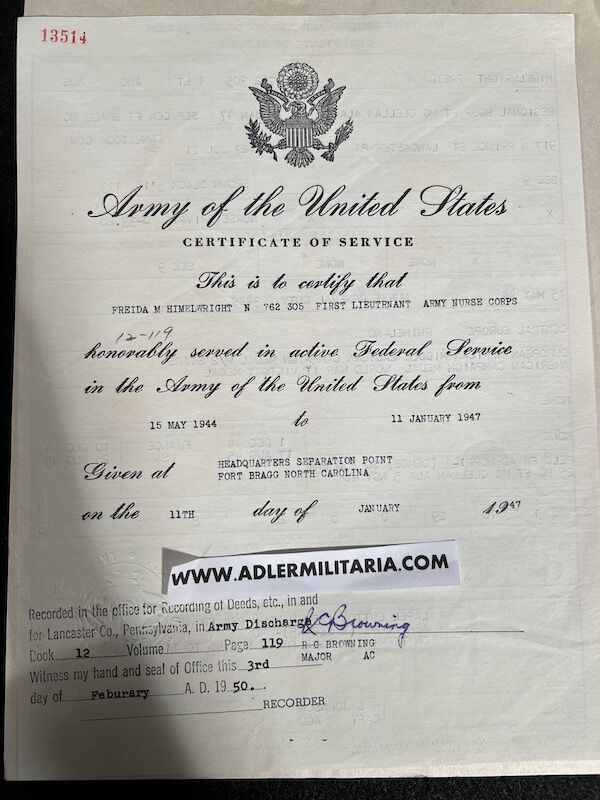 13514
Army of the United States
CERTIFICATE OF SERVICE
This is to certify that
FREIDA M HIMELWRIGHT N 762 305 FIRST LIEUTENANT ARMY NURSE CORPS
12-119
honorably served in active Federal Service
in the Army of the United States from
15 MAY 1944 to 11 JANUARY 1947
Given at HEADQUARTERS SEPARATION POINT
FORT BRAGG NORTH CAROLINA
on the 11TH day of JANUARY 1947
WWW.ADLERMILITARIA.COM
Recorded in the office for Recording of Deeds, etc., in and
for Lancaster Co., Pennsylvania, in Army Discharge RCBrowning
Dock 12 Volume Page 119 R C BROWNING
Witness my hand and seal of Office this 3rd MAJOR AC
day of Feburary A. D. 19 50.
RECORDER